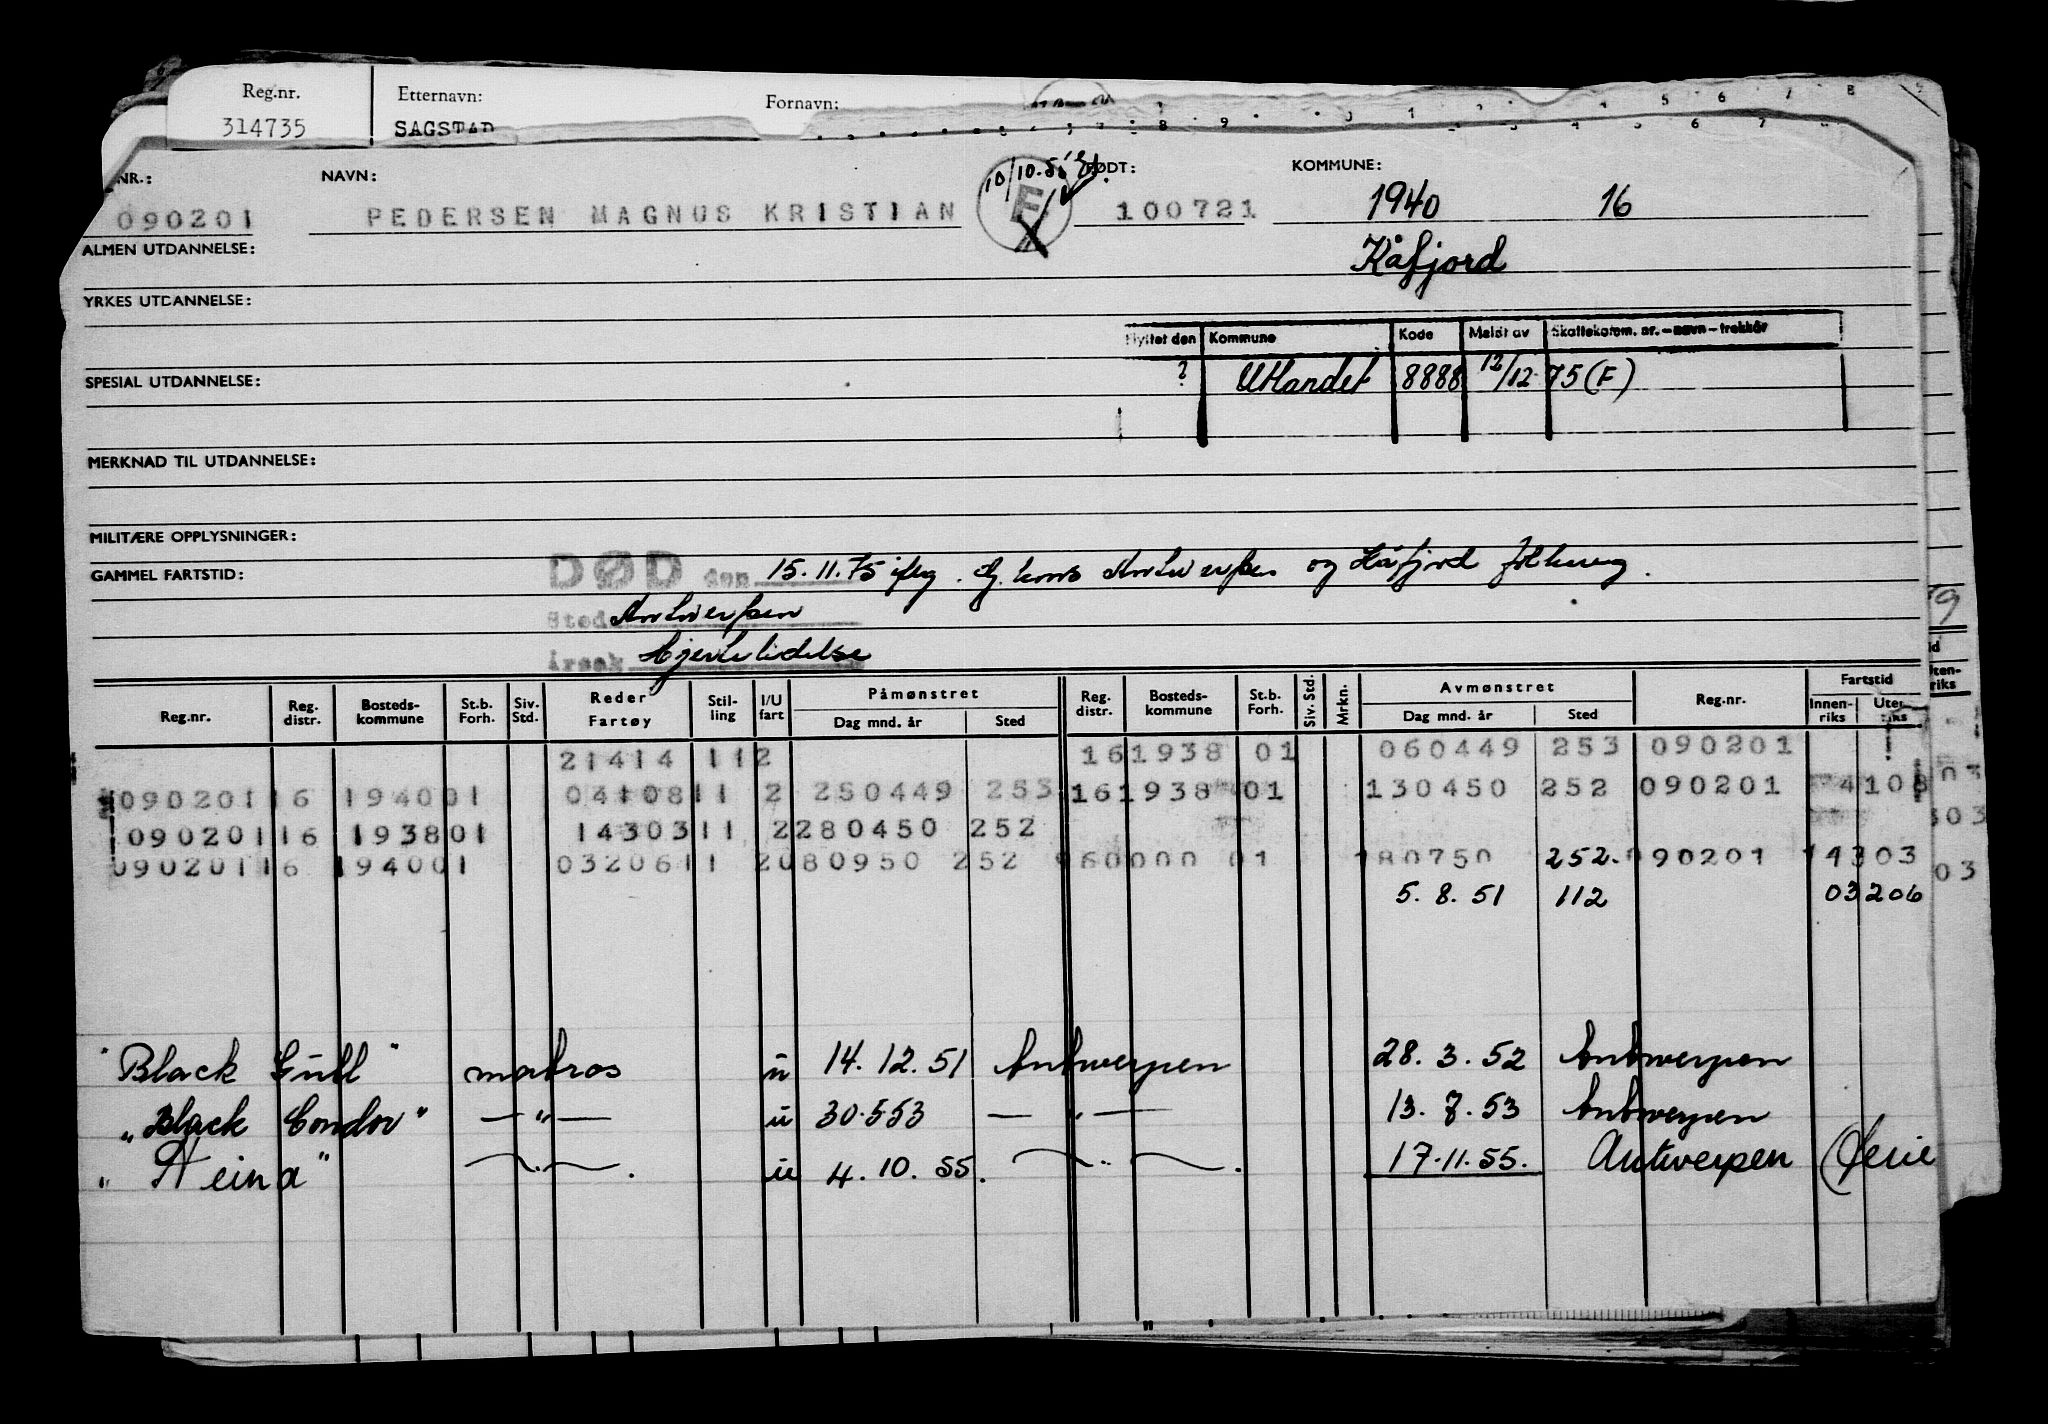 Reg.nr. Etternavn: Fornavn:
314735 SAGSTAD
NR.: NAVN: FØDT: KOMMUNE:
10/10.55
090201 PEDERSEN MAGNUS KRISTIAN E 100721 1940 16
ALMEN UTDANNELSE: Kåfjord
YRKES UTDANNELSE:
Flyttet den Kommune Kode Meldt av Skattekom. nr. – navn – trekkår
SPESIAL UTDANNELSE: ? Utlandet 8888 12/12 75 (F)
MERKNAD TIL UTDANNELSE:
MILITÆRE OPPLYSNINGER:
GAMMEL FARTSTID: DØD den 15.11.75 iflg. Gj. kons Antwerpen og Kåfjord
Sted Antwerpen
Årsak Hjertelidelse
Reg.nr. Reg. distr. Bosteds-kommune St.b. Forh. Siv. Std. Reder Fartøy Stil-ling I/U fart Påmønstret Dag mnd. år Sted Reg. distr. Bosteds-kommune St.b. Forh. Siv. Std. Mrkn. Avmønstret Dag mnd. år Sted Reg.nr. Fartstid Innen-riks Uten-riks
21414 11 2 16 1938 01 060449 253 090201
090201 16 1940 01 04108 11 2 250449 253 16 1938 01 130450 252 090201 4108
090201 16 1938 01 14303 11 2 280450 252
090201 16 1940 01 03206 11 2 080950 252 960000 01 180750 252. 090201 14303
5. 8. 51 112 03206
"Black Gull" matros u 14. 12. 51 Antwerpen 28. 3. 52 Antwerpen
"Black Condor" — " — u 30.5 53 — " — 13. 7. 53 Antwerpen
"Heina" — " — . u 4. 10. 55. — " — . 17. 11. 55. Antwerpen